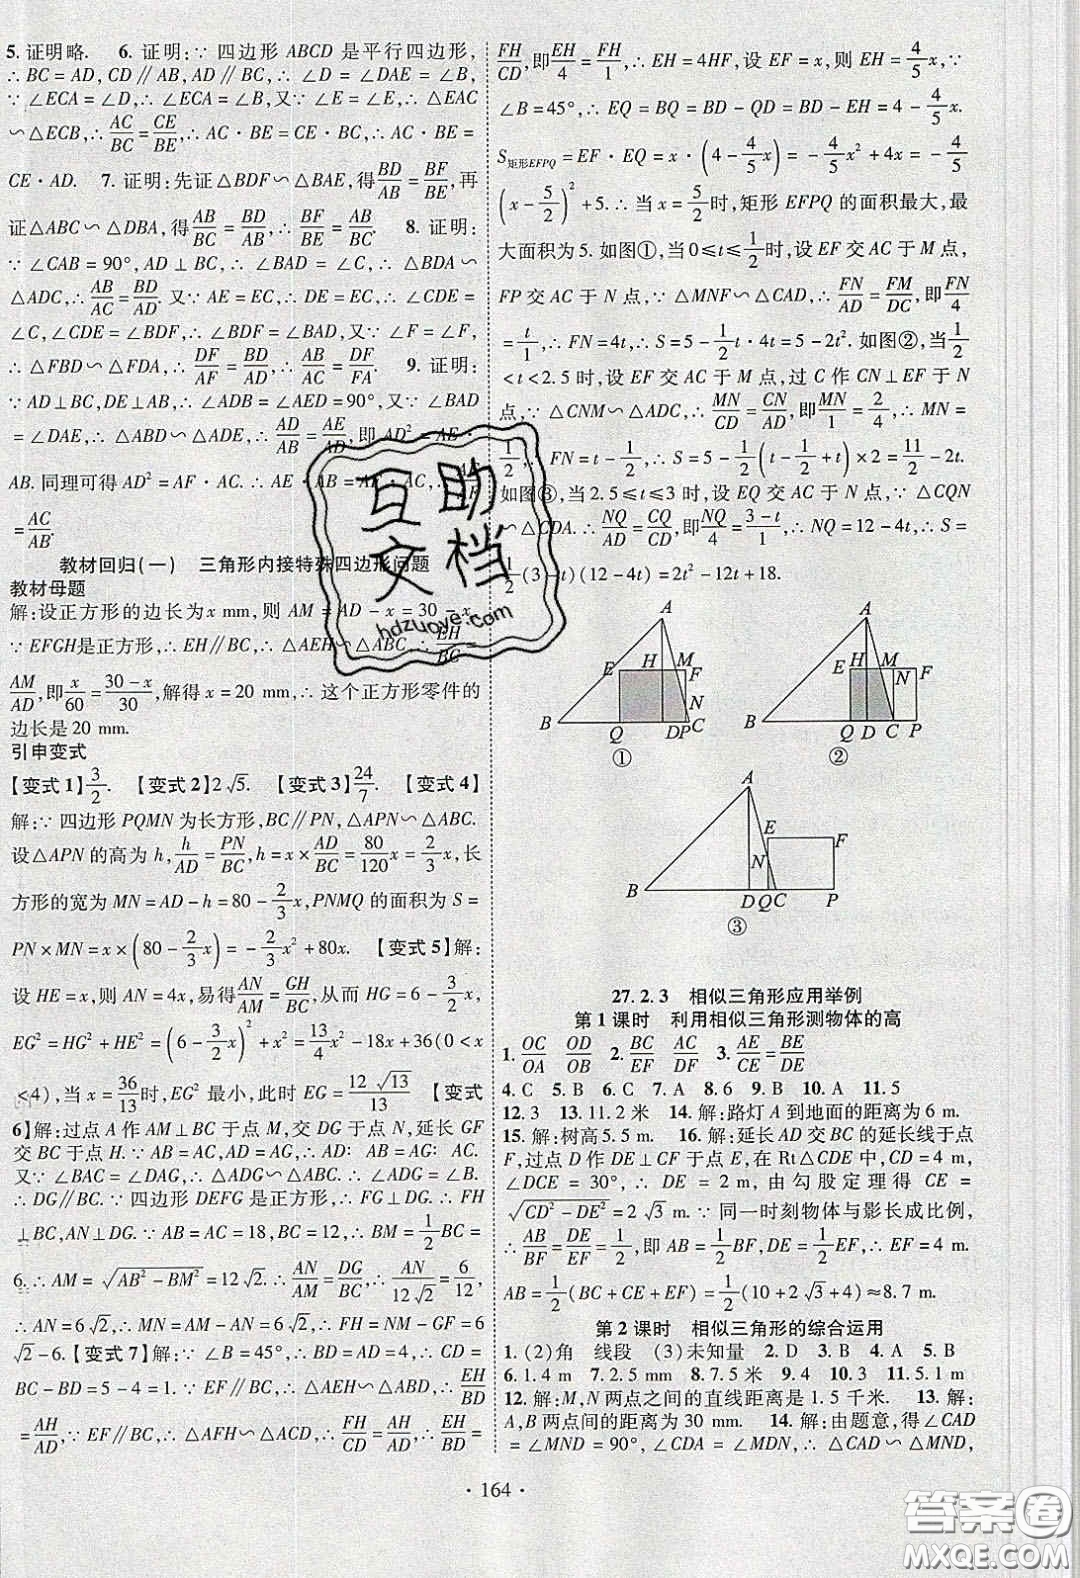 5. 证明略. 6. 证明:∵ 四边形 ABCD 是平行四边形,
∴ BC = AD, CD∥AB, AD∥BC, ∴ ∠D = ∠DAE = ∠B,
∵ ∠ECA = ∠D, ∴ ∠ECA = ∠B, 又∵ ∠E = ∠E, ∴ △EAC
∽△ECB, ∴ AC/BC = CE/BE, ∴ AC·BE = CE·BC, ∴ AC·BE =
CE·AD. 7. 证明:先证△BDF∽△BAE, 得 BD/AB = BF/BE, 再
证△ABC∽△DBA, 得 AB/BC = BD/AB, ∴ BF/BE = AB/BC. 8. 证明:
∵ ∠CAB = 90°, AD⊥BC, ∴ ∠BAD = ∠C, ∴ △BDA∽
△ADC, ∴ AB/AC = BD/AD. 又∵ AE = EC, ∴ DE = EC, ∴ ∠CDE =
∠C, ∠CDE = ∠BDF, ∴ ∠BDF = ∠BAD, 又∵ ∠F = ∠F,
∴ △FBD∽△FDA, ∴ DF/AF = BD/AD, ∴ AB/AC = DF/FA. 9. 证明:
∵ AD⊥BC, DE⊥AB, ∴ ∠ADB = ∠AED = 90°, ∵ ∠BAD
= ∠DAE, ∴ △ABD∽△ADE, ∴ AD/AB = AE/AD, 即 AD² = AE·
AB. 同理可得 AD² = AF·AC. ∴ AE·AB = AF·AC
= AC/AB.
教材回归(一) 三角形内接特殊四边形问题
教材母题
解:设正方形的边长为 x mm, 则 AM = AD − x = 30 − x
∵ EFGH 是正方形, ∴ EH∥BC, ∴ △AEH∽△ABC, ∴ EH/BC =
AM/AD, 即 x/60 = (30−x)/30, 解得 x = 20 mm, ∴ 这个正方形零件的
边长是 20 mm.
引申变式
【变式 1】3/2. 【变式 2】2√5. 【变式 3】24/7. 【变式 4】
解:∵ 四边形 PQMN 为长方形, BC∥PN, △APN∽△ABC.
设△APN 的高为 h, h/AD = PN/BC, h = x × AD/BC = 80/120 x = 2/3 x, 长
方形的宽为 MN = AD − h = 80 − 2/3 x, PNMQ 的面积为 S =
PN × MN = x × (80 − 2/3 x) = −2/3 x² + 80x. 【变式 5】解:
设 HE = x, 则 AN = 4x, 易得 AN/AN = GH/BC, 从而 HG = 6 − 3/2 x,
EG² = HG² + HE² = (6 − 3/2 x)² + x² = 13/4 x² − 18x + 36(0 < x
<4), 当 x = 36/13 时, EG² 最小, 此时 EG = 12√13/13 【变式
6】解:过点 A 作 AM⊥BC 于点 M, 交 DG 于点 N, 延长 GF
交 BC 于点 H. ∵ AB = AC, AD = AG, ∴ AD∶AB = AG∶AC.
∵ ∠BAC = ∠DAG, ∴ △ADG∽△ABC. ∴ ∠ADG = ∠B.
∴ DG∥BC. ∵ 四边形 DEFG 是正方形, ∴ FG⊥DG. ∴ FH
⊥BC, AN⊥DG. ∵ AB = AC = 18, BC = 12, ∴ BM = 1/2 BC =
6. ∴ AM = √(AB² − BM²) = 12√2. ∴ AN/AM = DG/BC, ∴ AN/12√2 = 6/12,
∴ AN = 6√2, ∴ MN = AM − AN = 6√2. ∴ FH = MN − GF = 6
√2 − 6. 【变式 7】解:∵ ∠B = 45°, ∴ AD = BD = 4, ∴ CD =
BC − BD = 5 − 4 = 1. ∵ EH∥BC, ∴ △AEH∽△ABD, ∴ EH/BD
= AH/AD, ∵ EF∥BC, ∴ △AFH∽△ACD, ∴ FH/CD = AH/AD, ∴ EH/BD =
FH/CD, 即 EH/4 = FH/1, ∴ EH = 4HF, 设 EF = x, 则 EH = 4/5 x, ∵
∠B = 45°, ∴ EQ = BQ = BD − QD = BD − EH = 4 − 4/5 x.
S矩形EFPQ = EF·EQ = x·(4 − 4/5 x) = −4/5 x² + 4x = −4/5
(x − 5/2)² + 5. ∴ 当 x = 5/2 时, 矩形 EFPQ 的面积最大, 最
大面积为 5. 如图①, 当 0≤t≤1/2 时, 设 EF 交 AC 于 M 点,
FP 交 AC 于 N 点, ∵ △MNF∽△CAD, ∴ FN/AD = FM/DC, 即 FN/4
= t/1, ∴ FN = 4t, ∴ S = 5 − 1/2 t·4t = 5 − 2t². 如图②, 当 1/2
<t<2.5 时, 设 EF 交 AC 于 M 点, 过 C 作 CN⊥EF 于 N
点, ∵ △CNM∽△ADC, ∴ MN/CD = CN/AD, 即 MN/1 = 2/4, ∴ MN =
1/2, ∴ FN = t − 1/2, ∴ S = 5 − 1/2(t − 1/2 + t) × 2 = 11/2 − 2t.
如图③, 当 2.5≤t≤3 时, 设 EQ 交 AC 于 N 点, ∵ △CQN
∽△CDA. ∴ NQ/AD = CQ/CD, 即 NQ/4 = (3−t)/1, ∴ NQ = 12 − 4t, ∴ S =
1/2(3−t)(12−4t) = 2t² − 12t + 18.
A E H M F N B Q D P C ①
A H E M N F B Q D C P ②
A E F N B D Q C P ③
27.2.3 相似三角形应用举例
第 1 课时 利用相似三角形测物体的高
1. OC/OA OD/OB 2. BC/EF AC/DF 3. AE/CE = BE/DE
4. C 5. B 6. C 7. A 8. 6 9. B 10. A 11. 5
12. 3 13. 11.2 米 14. 解:路灯 A 到地面的距离为 6 m.
15. 解:树高 5.5 m. 16. 解:延长 AD 交 BC 的延长线于点
F, 过点 D 作 DE⊥CF 于点 E, 在 Rt△CDE 中, CD = 4 m,
∠DCE = 30°, ∴ DE = 2 m, 由勾股定理得 CE =
√(CD² − DE²) = 2√3 m. ∵ 同一时刻物体与影长成比例,
∴ AB/BF = DE/EF = 1/2, 即 AB = 1/2 BF, DE = 1/2 EF, ∴ EF = 4 m.
AB = 1/2(BC + CE + EF) = 1/2(10 + 2√3 + 4) ≈ 8.7 m.
第 2 课时 相似三角形的综合运用
1. (2)角 线段 (3)未知量 2. D 3. B 4. A 5. B
6. 1.4 m 7. 2.5 mm 8. 7.5 米 9. 4 10. 3 11. 5.1 m
12. 解:M, N 两点之间的直线距离是 1.5 千米. 13. 解:
A, B 两点间的距离为 30 mm. 14. 解:由题意, 得∠CAD
= ∠MND = 90°, ∠CDA = ∠MDN, ∴ △CAD∽△MND,
· 164 ·
互助
文档
hdzuoye.com
答案圈
MXQE.COM